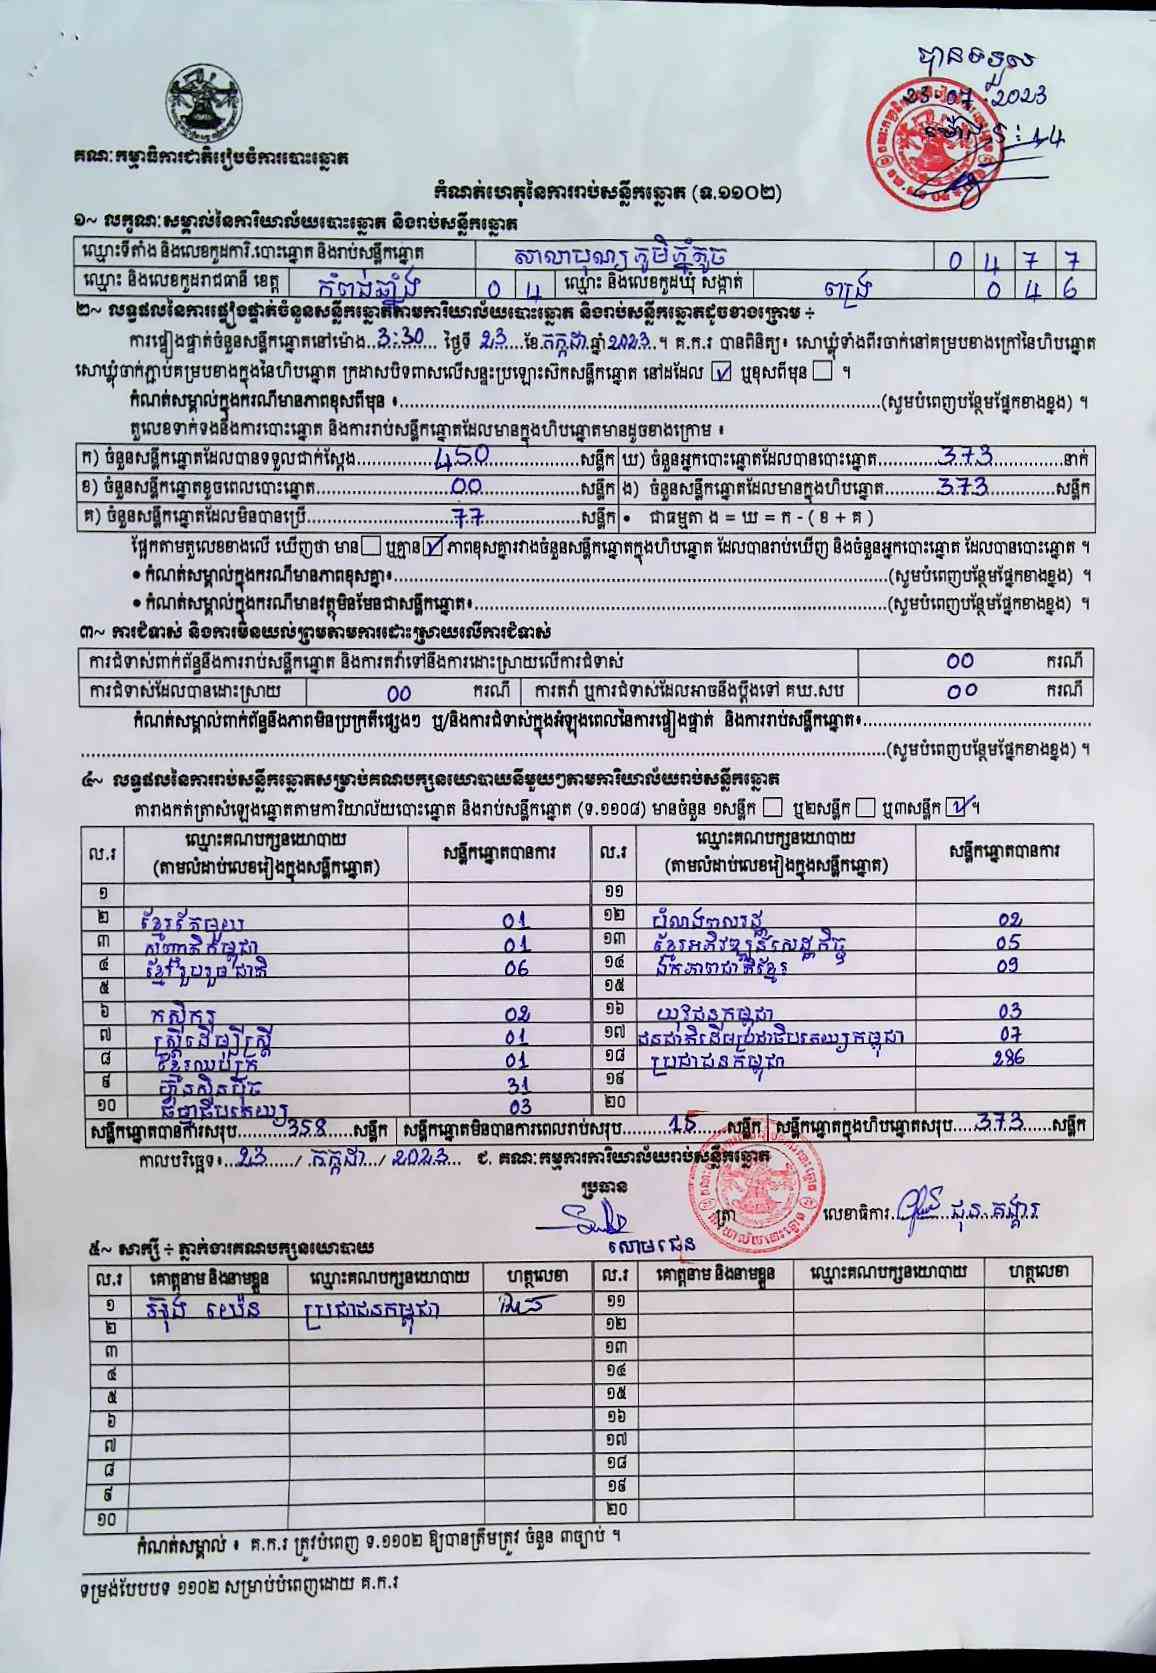 បានទទួល
23.07.2023
ម៉ោង 5:14
គណៈកម្មាធិការជាតិរៀបចំការបោះឆ្នោត
កំណត់ហេតុនៃការរាប់សន្លឹកឆ្នោត (ទ.១១០២)
១~ លក្ខណៈសម្គាល់នៃការិយាល័យបោះឆ្នោត និងរាប់សន្លឹកឆ្នោត
ឈ្មោះទីតាំង និងលេខកូដការិ.បោះឆ្នោត និងរាប់សន្លឹកឆ្នោត សាលាបុណ្យភូមិភ្នំតូច 0 4 7 7
ឈ្មោះ និងលេខកូដរាជធានី ខេត្ត កំពង់ឆ្នាំង 0 4 ឈ្មោះ និងលេខកូដឃុំ សង្កាត់ ពង្រ 0 4 6
២~ លទ្ធផលនៃការផ្ទៀងផ្ទាត់ចំនួនសន្លឹកឆ្នោតតាមការិយាល័យបោះឆ្នោត និងរាប់សន្លឹកឆ្នោតដូចខាងក្រោម ÷
ការផ្ទៀងផ្ទាត់ចំនួនសន្លឹកឆ្នោតនៅម៉ោង..3:30.......... ថ្ងៃទី 23.....ខែ.កក្កដា.ឆ្នាំ2023..។ គ.ក.រ បានពិនិត្យ៖ សោឃ្លុំទាំងពីរចាក់នៅគម្របខាងក្រៅនៃហិបឆ្នោត
សោឃ្លុំចាក់ភ្ជាប់គម្របខាងក្នុងនៃហិបឆ្នោត ក្រដាសបិទពាសលើសន្ទះប្រឡោះស៊កសន្លឹកឆ្នោត នៅដដែល ☑ ឬខុសពីមុន ☐ ។
កំណត់សម្គាល់ក្នុងករណីមានភាពខុសពីមុន ៖..........(សូមបំពេញបន្ថែមផ្នែកខាងខ្នង) ។
តួលេខទាក់ទងនឹងការបោះឆ្នោត និងការរាប់សន្លឹកឆ្នោតដែលមានក្នុងហិបឆ្នោតមានដូចខាងក្រោម ៖
ក) ចំនួនសន្លឹកឆ្នោតដែលបានទទួលជាក់ស្ដែង..........450..........សន្លឹក ឃ) ចំនួនអ្នកបោះឆ្នោតដែលបានបោះឆ្នោត..........373..........នាក់
ខ) ចំនួនសន្លឹកឆ្នោតខូចពេលបោះឆ្នោត..........00..........សន្លឹក ង) ចំនួនសន្លឹកឆ្នោតដែលមានក្នុងហិបឆ្នោត..........373..........សន្លឹក
គ) ចំនួនសន្លឹកឆ្នោតដែលមិនបានប្រើ..........77..........សន្លឹក • ជាធម្មតា ង = ឃ = ក - ( ខ + គ )
ផ្អែកតាមតួលេខខាងលើ ឃើញថា មាន☐ ឬគ្មាន☑ ភាពខុសគ្នារវាងចំនួនសន្លឹកឆ្នោតក្នុងហិបឆ្នោត ដែលបានរាប់ឃើញ និងចំនួនអ្នកបោះឆ្នោត ដែលបានបោះឆ្នោត ។
• កំណត់សម្គាល់ក្នុងករណីមានភាពខុសគ្នា៖..........(សូមបំពេញបន្ថែមផ្នែកខាងខ្នង) ។
• កំណត់សម្គាល់ក្នុងករណីមានវត្ថុមិនមែនជាសន្លឹកឆ្នោត៖..........(សូមបំពេញបន្ថែមផ្នែកខាងខ្នង) ។
៣~ ការជំទាស់ និងការមិនយល់ព្រមតាមការដោះស្រាយលើការជំទាស់
ការជំទាស់ពាក់ព័ន្ធនឹងការរាប់សន្លឹកឆ្នោត និងការតវ៉ាទៅនឹងការដោះស្រាយលើការជំទាស់ 00 ករណី
ការជំទាស់ដែលបានដោះស្រាយ 00 ករណី ការតវ៉ា ឬការជំទាស់ដែលអាចនឹងប្ដឹងទៅ គឃ.សប 00 ករណី
កំណត់សម្គាល់ពាក់ព័ន្ធនឹងភាពមិនប្រក្រតីផ្សេងៗ ឬ/និងការជំទាស់ក្នុងអំឡុងពេលនៃការផ្ទៀងផ្ទាត់ និងការរាប់សន្លឹកឆ្នោត៖..........
..........(សូមបំពេញបន្ថែមផ្នែកខាងខ្នង) ។
៤~ លទ្ធផលនៃការរាប់សន្លឹកឆ្នោតសម្រាប់គណបក្សនយោបាយនីមួយៗតាមការិយាល័យរាប់សន្លឹកឆ្នោត
តារាងកត់ត្រាសំឡេងឆ្នោតតាមការិយាល័យបោះឆ្នោត និងរាប់សន្លឹកឆ្នោត (ទ.១១០៨) មានចំនួន ១សន្លឹក ☐ ឬ២សន្លឹក ☐ ឬ៣សន្លឹក ☑ ។
ល.រ ឈ្មោះគណបក្សនយោបាយ (តាមលំដាប់លេខរៀងក្នុងសន្លឹកឆ្នោត) សន្លឹកឆ្នោតបានការ ល.រ ឈ្មោះគណបក្សនយោបាយ (តាមលំដាប់លេខរៀងក្នុងសន្លឹកឆ្នោត) សន្លឹកឆ្នោតបានការ
១ ១១
២ ខ្មែរតែមួយ 01 ១២ បំណងពលរដ្ឋ 02
៣ សញ្ជាតិកម្ពុជា 01 ១៣ ខ្មែរអភិវឌ្ឍន៍សេដ្ឋកិច្ច 05
៤ ខ្មែររួបរួមជាតិ 06 ១៤ ឯកភាពជាតិខ្មែរ 09
៥ ១៥
៦ កសិករ 02 ១៦ យុវជនកម្ពុជា 03
៧ ស្ត្រីដើម្បីស្ត្រី 01 ១៧ ជនជាតិដើមប្រជាធិបតេយ្យកម្ពុជា 07
៨ ខ្មែរឈប់ក្រ 01 ១៨ ប្រជាជនកម្ពុជា 286
៩ ហ៊្វុនស៊ិនប៉ិច 31 ១៩
១០ ធម្មាធិបតេយ្យ 03 ២០
សន្លឹកឆ្នោតបានការសរុប..........358......សន្លឹក សន្លឹកឆ្នោតមិនបានការពេលរាប់សរុប..........15......សន្លឹក សន្លឹកឆ្នោតក្នុងហិបឆ្នោតសរុប....373......សន្លឹក
កាលបរិច្ឆេទ៖..23....../ កក្កដា../ 2023... ជ. គណៈកម្មការការិយាល័យរាប់សន្លឹកឆ្នោត
ប្រធាន
ត្រា លេខាធិការ.......... ជុន គង្គារ
សោម ផេន
៥~ សាក្សី ÷ ភ្នាក់ងារគណបក្សនយោបាយ
ល.រ គោត្តនាម និងនាមខ្លួន ឈ្មោះគណបក្សនយោបាយ ហត្ថលេខា ល.រ គោត្តនាម និងនាមខ្លួន ឈ្មោះគណបក្សនយោបាយ ហត្ថលេខា
១ អ៊ុង យ៉េន ប្រជាជនកម្ពុជា ១១
២ ១២
៣ ១៣
៤ ១៤
៥ ១៥
៦ ១៦
៧ ១៧
៨ ១៨
៩ ១៩
១០ ២០
កំណត់សម្គាល់ ៖ គ.ក.រ ត្រូវបំពេញ ទ.១១០២ ឱ្យបានត្រឹមត្រូវ ចំនួន ៣ច្បាប់ ។
ទម្រង់បែបបទ ១១០២ សម្រាប់បំពេញដោយ គ.ក.រ